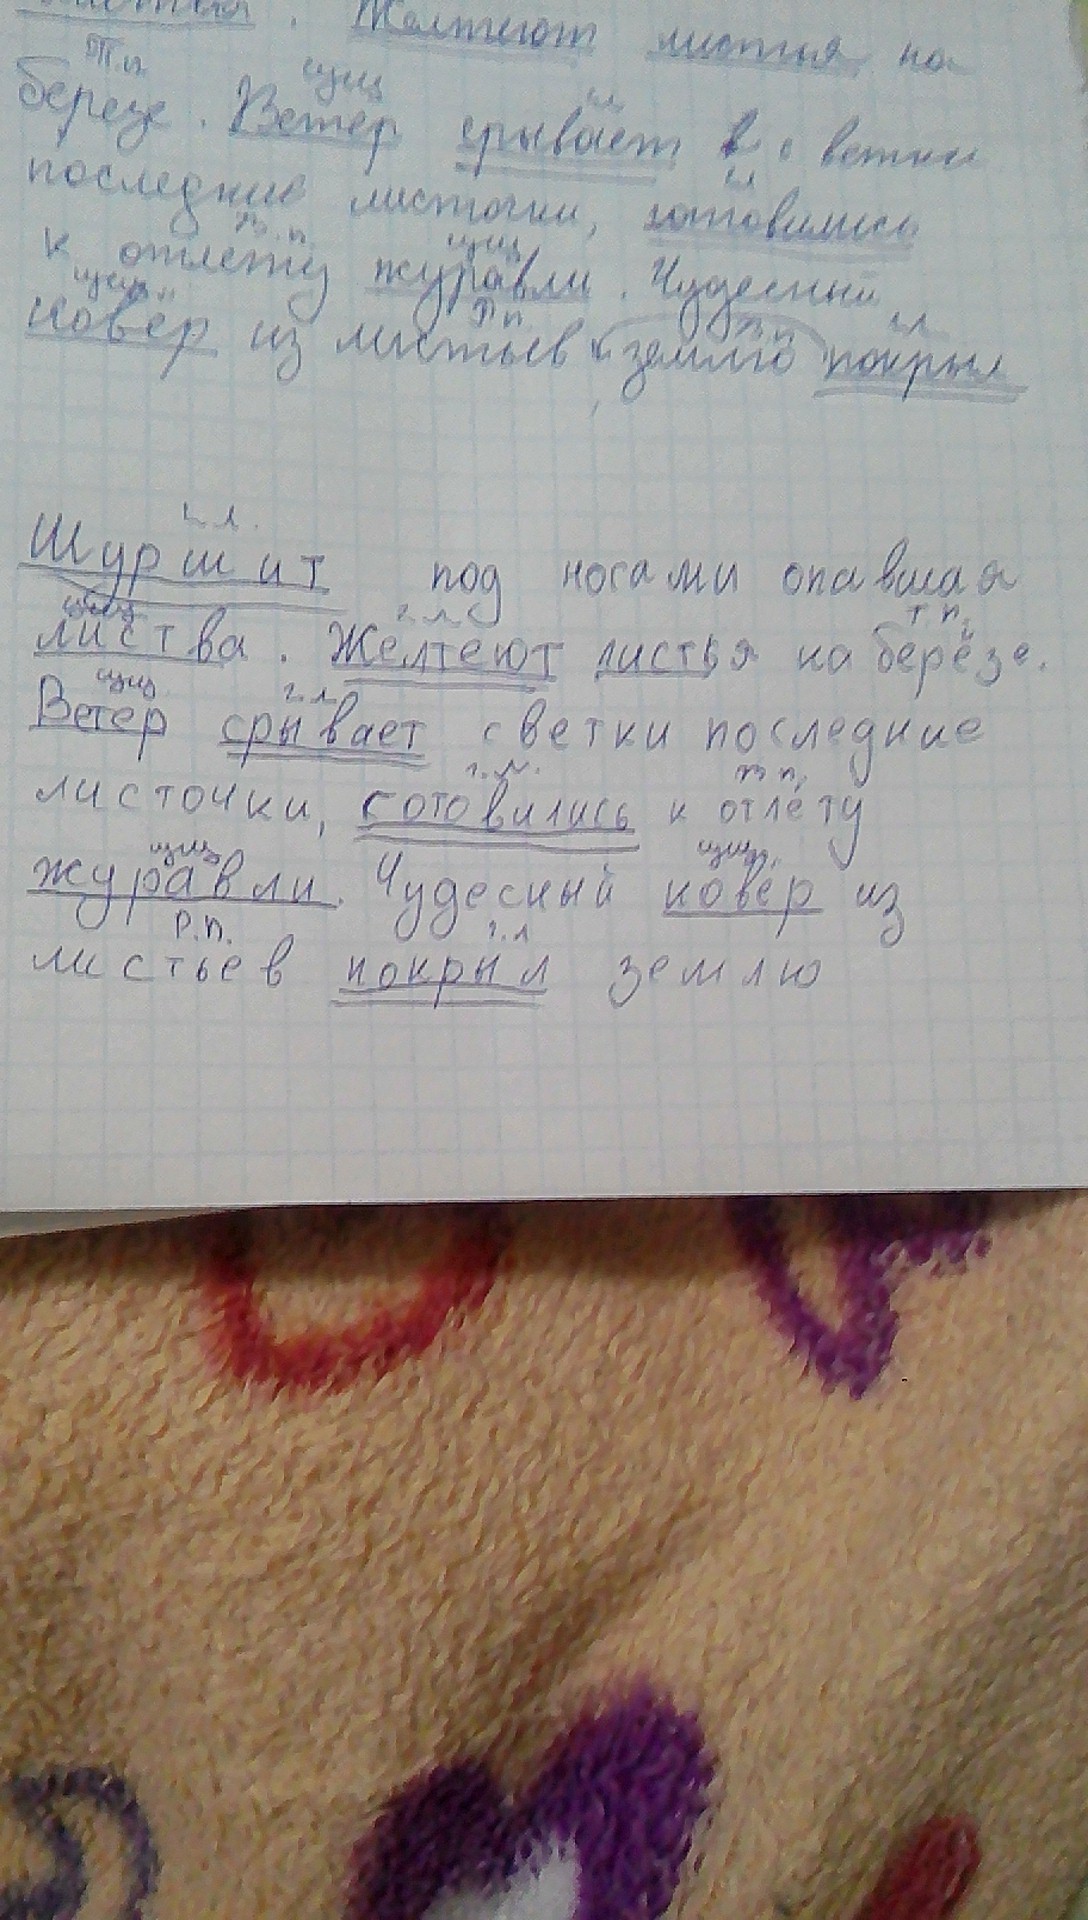 листья. Желтеют листья на
Т.п сущ гл
березе. Ветер срывает с ветки
гл
последние листочки, готовились
Т.п. сущ
к отлёту журавли. Чудесный
сущ Р п Т п гл
ковёр из листьев землю покрыл
г л.
Шуршит под ногами опавшая
сущ г л Т. п.
листва. Желтеют листья на берёзе.
сущ г л
Ветер срывает с ветки последние
г. л. т п.
листочки, готовились к отлёту
сущ сущ.
журавли. Чудесный ковёр из
Р.п. г.л
листьев покрыл землю